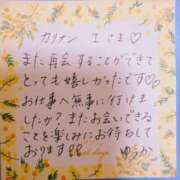 カリナン Iさま♡
また再会することができて
とっても嬉しかったです♡
お仕事へ無事に行けま
したか？またお会いできる
ことを楽しみにお待ちして
おります
ゆうか